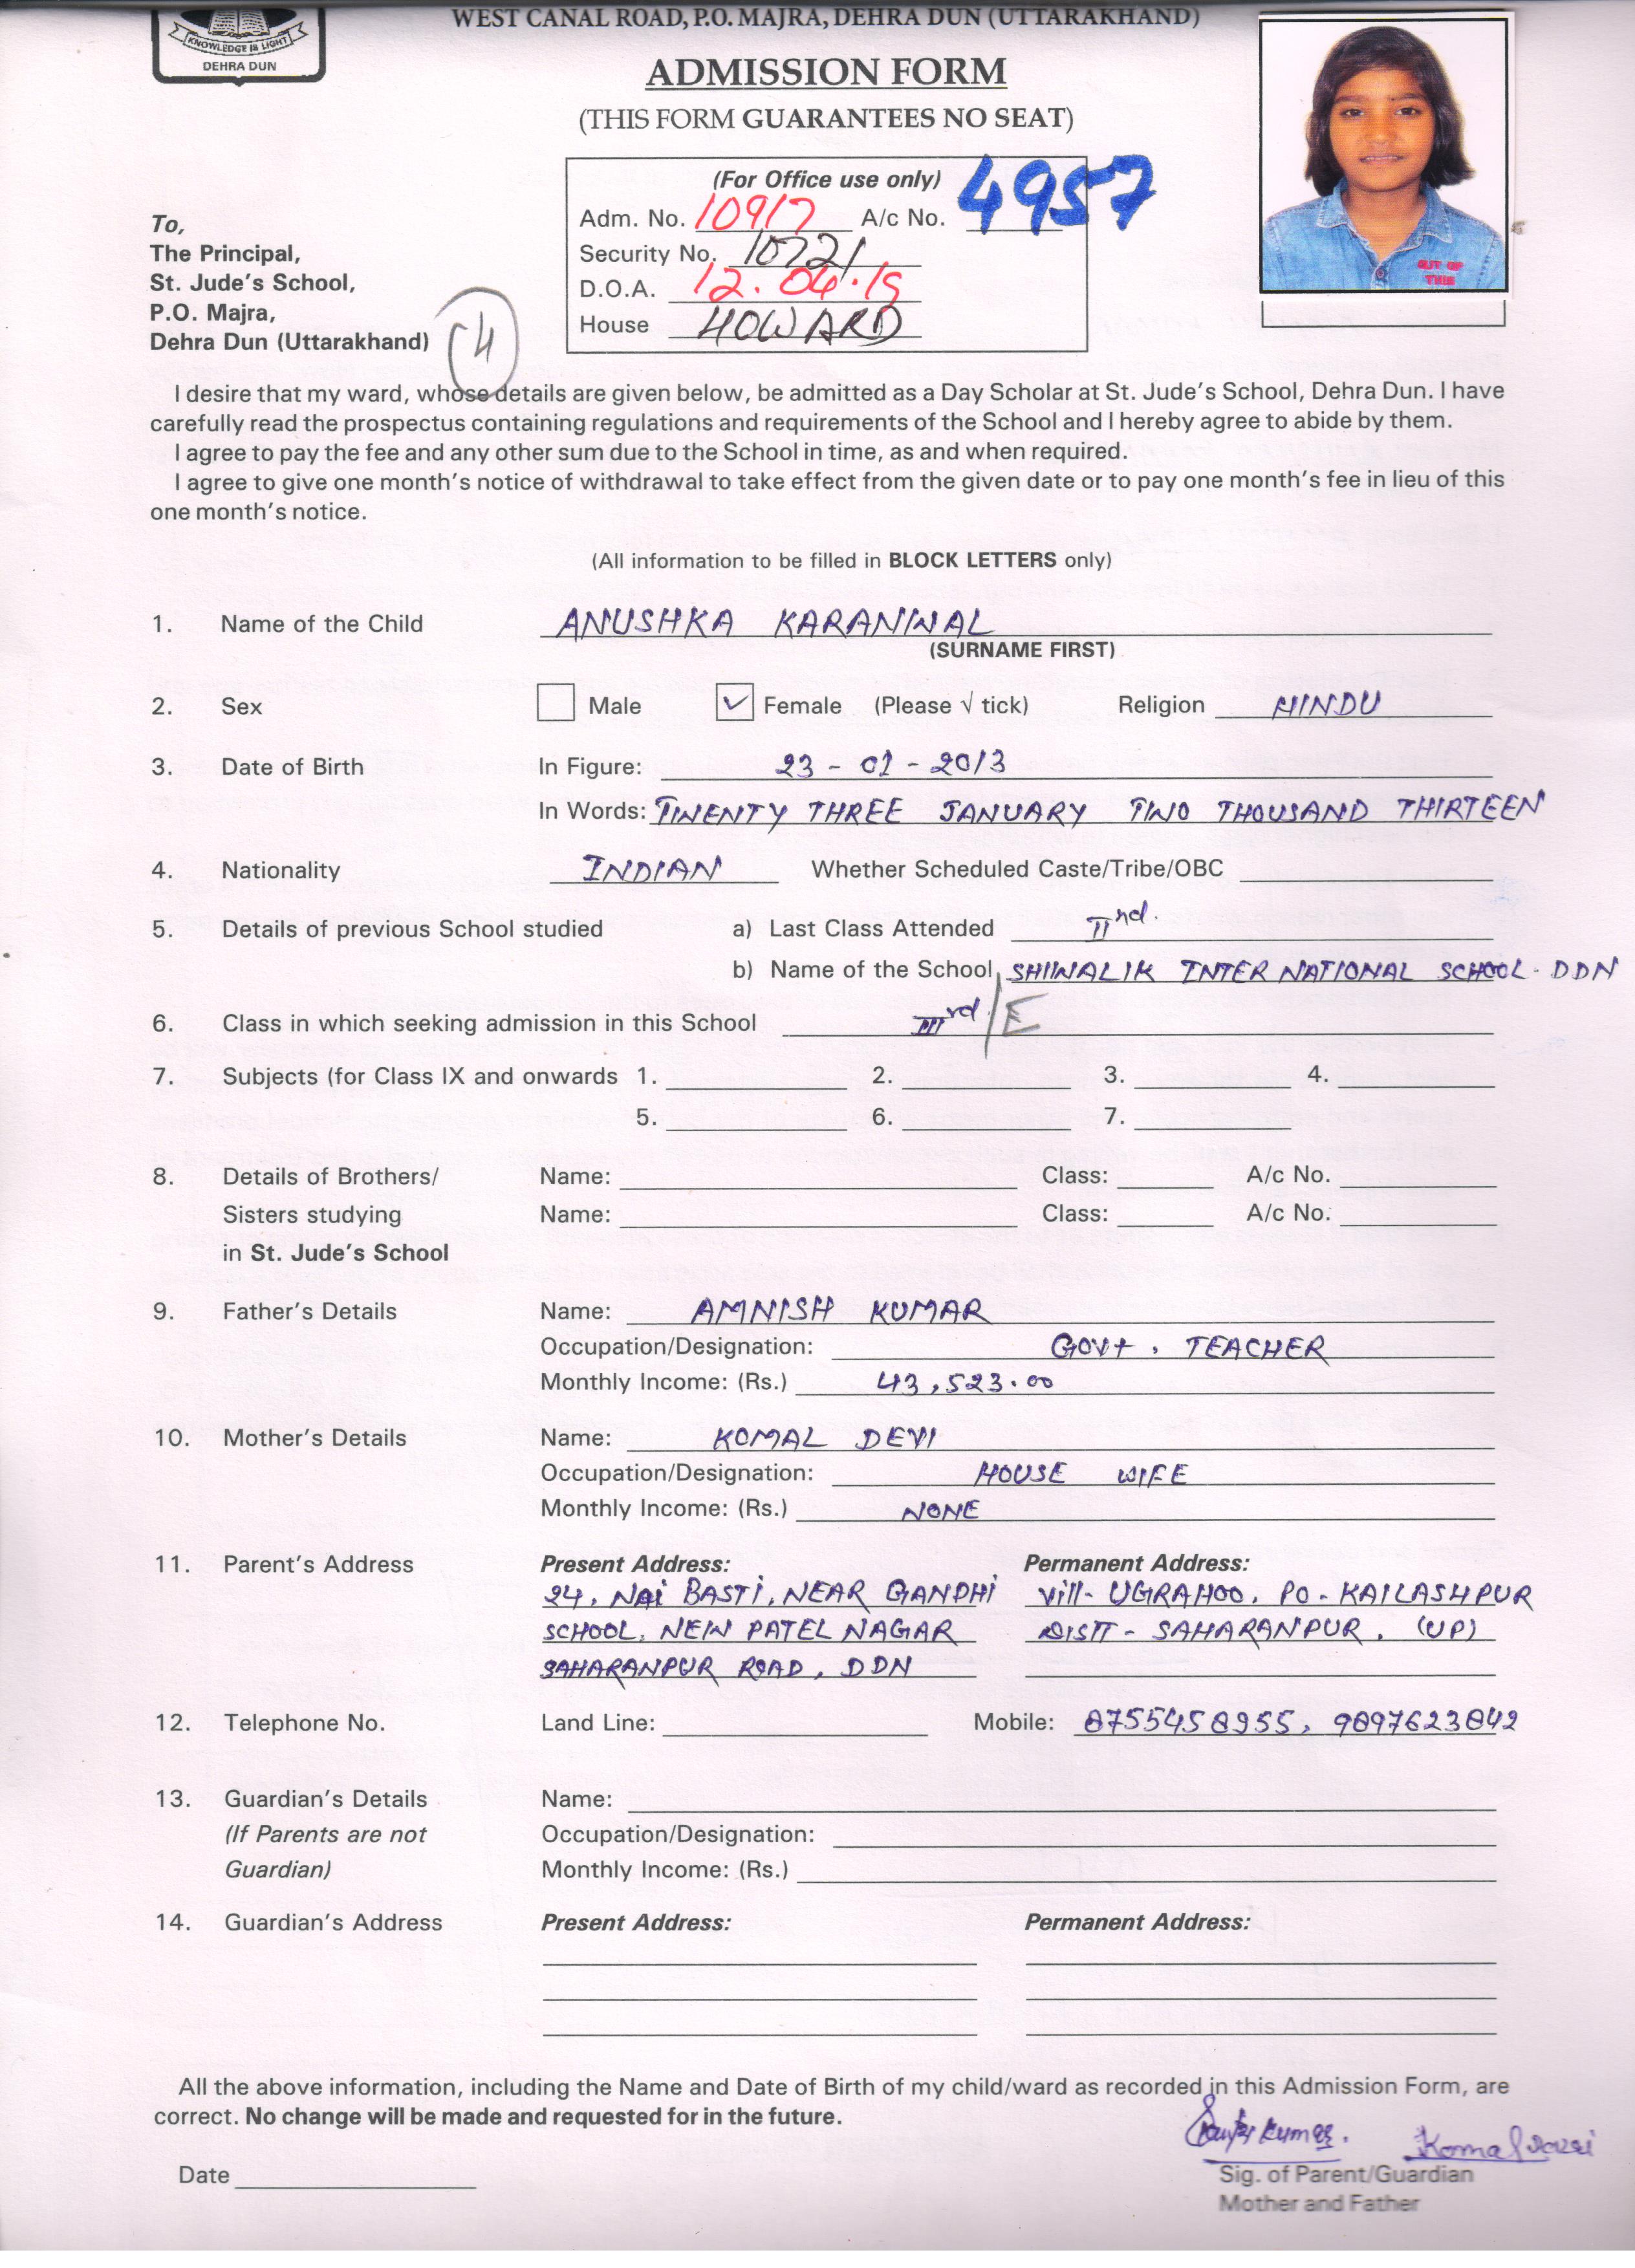 KNOWLEDGE IS LIGHT
DEHRA DUN
WEST CANAL ROAD, P.O. MAJRA, DEHRA DUN (UTTARAKHAND)
ADMISSION FORM
(THIS FORM GUARANTEES NO SEAT)
(For Office use only)
Adm. No. 10917 A/c No. 4957
Security No. 10721
D.O.A. 12.04.19
House HOWARD
OUT OF
THIS
To,
The Principal,
St. Jude's School,
P.O. Majra,
Dehra Dun (Uttarakhand)
I desire that my ward, whose details are given below, be admitted as a Day Scholar at St. Jude's School, Dehra Dun. I have
carefully read the prospectus containing regulations and requirements of the School and I hereby agree to abide by them.
I agree to pay the fee and any other sum due to the School in time, as and when required.
I agree to give one month's notice of withdrawal to take effect from the given date or to pay one month's fee in lieu of this
one month's notice.
(All information to be filled in BLOCK LETTERS only)
1. Name of the Child ANUSHKA KARANWAL
(SURNAME FIRST)
2. Sex Male ✓ Female (Please √ tick) Religion HINDU
3. Date of Birth In Figure: 23 - 01 - 2013
In Words: TWENTY THREE JANUARY TWO THOUSAND THIRTEEN
4. Nationality INDIAN Whether Scheduled Caste/Tribe/OBC
5. Details of previous School studied a) Last Class Attended IInd.
b) Name of the School SHIWALIK INTERNATIONAL SCHOOL. DDN
6. Class in which seeking admission in this School IIIrd/E
7. Subjects (for Class IX and onwards 1. 2. 3. 4.
5. 6. 7.
8. Details of Brothers/ Name: Class: A/c No.
Sisters studying Name: Class: A/c No.
in St. Jude's School
9. Father's Details Name: AMNISH KUMAR
Occupation/Designation: GOVt. TEACHER
Monthly Income: (Rs.) 43,523.00
10. Mother's Details Name: KOMAL DEVI
Occupation/Designation: HOUSE WIFE
Monthly Income: (Rs.) NONE
11. Parent's Address Present Address: Permanent Address:
24, Nai BASTi, NEAR GANDHi Vill- UGRAHOO, PO - KAILASHPUR
SCHOOL, NEW PATEL NAGAR DISTT - SAHARANPUR. (UP)
SAHARANPUR ROAD, DDN
12. Telephone No. Land Line: Mobile: 8755458955, 9897623842
13. Guardian's Details Name:
(If Parents are not Occupation/Designation:
Guardian) Monthly Income: (Rs.)
14. Guardian's Address Present Address: Permanent Address:
All the above information, including the Name and Date of Birth of my child/ward as recorded in this Admission Form, are
correct. No change will be made and requested for in the future.
Kumar. Komal Devi
Date Sig. of Parent/Guardian
Mother and Father